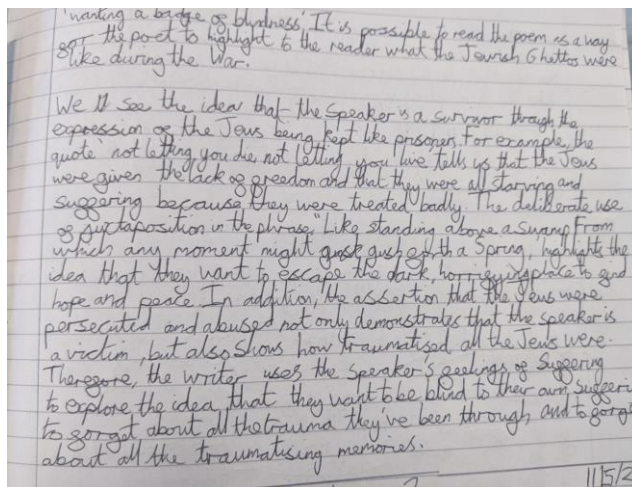 'wanting a badge of blindness'. It is possible to read the poem as a way
for the poet to highlight to the reader what the Jewish Ghettos were
like during the War.
We see the idea that the speaker is a survivor through the
expression of the Jews being kept like prisoners. For example, the
quote 'not letting you die not letting you live tells us that the Jews
were given the lack of freedom and that they were all starving and
suffering because they were treated badly. The deliberate use
of juxtaposition in the phrase, "Like standing above a swamp From
which any moment might gush forth a Spring, highlights the
idea that they want to escape the dark, horrifying place to find
hope and peace. In addition, the assertion that the Jews were
persecuted and abused not only demonstrates that the speaker is
a victim, but also shows how traumatised all the Jews were.
Therefore, the writer uses the speaker's feelings of suffering
to explore the idea, that they want to be blind to their own suffering
to forget about all the trauma they've been through and to forget
about all the traumatising memories.
11/5/2